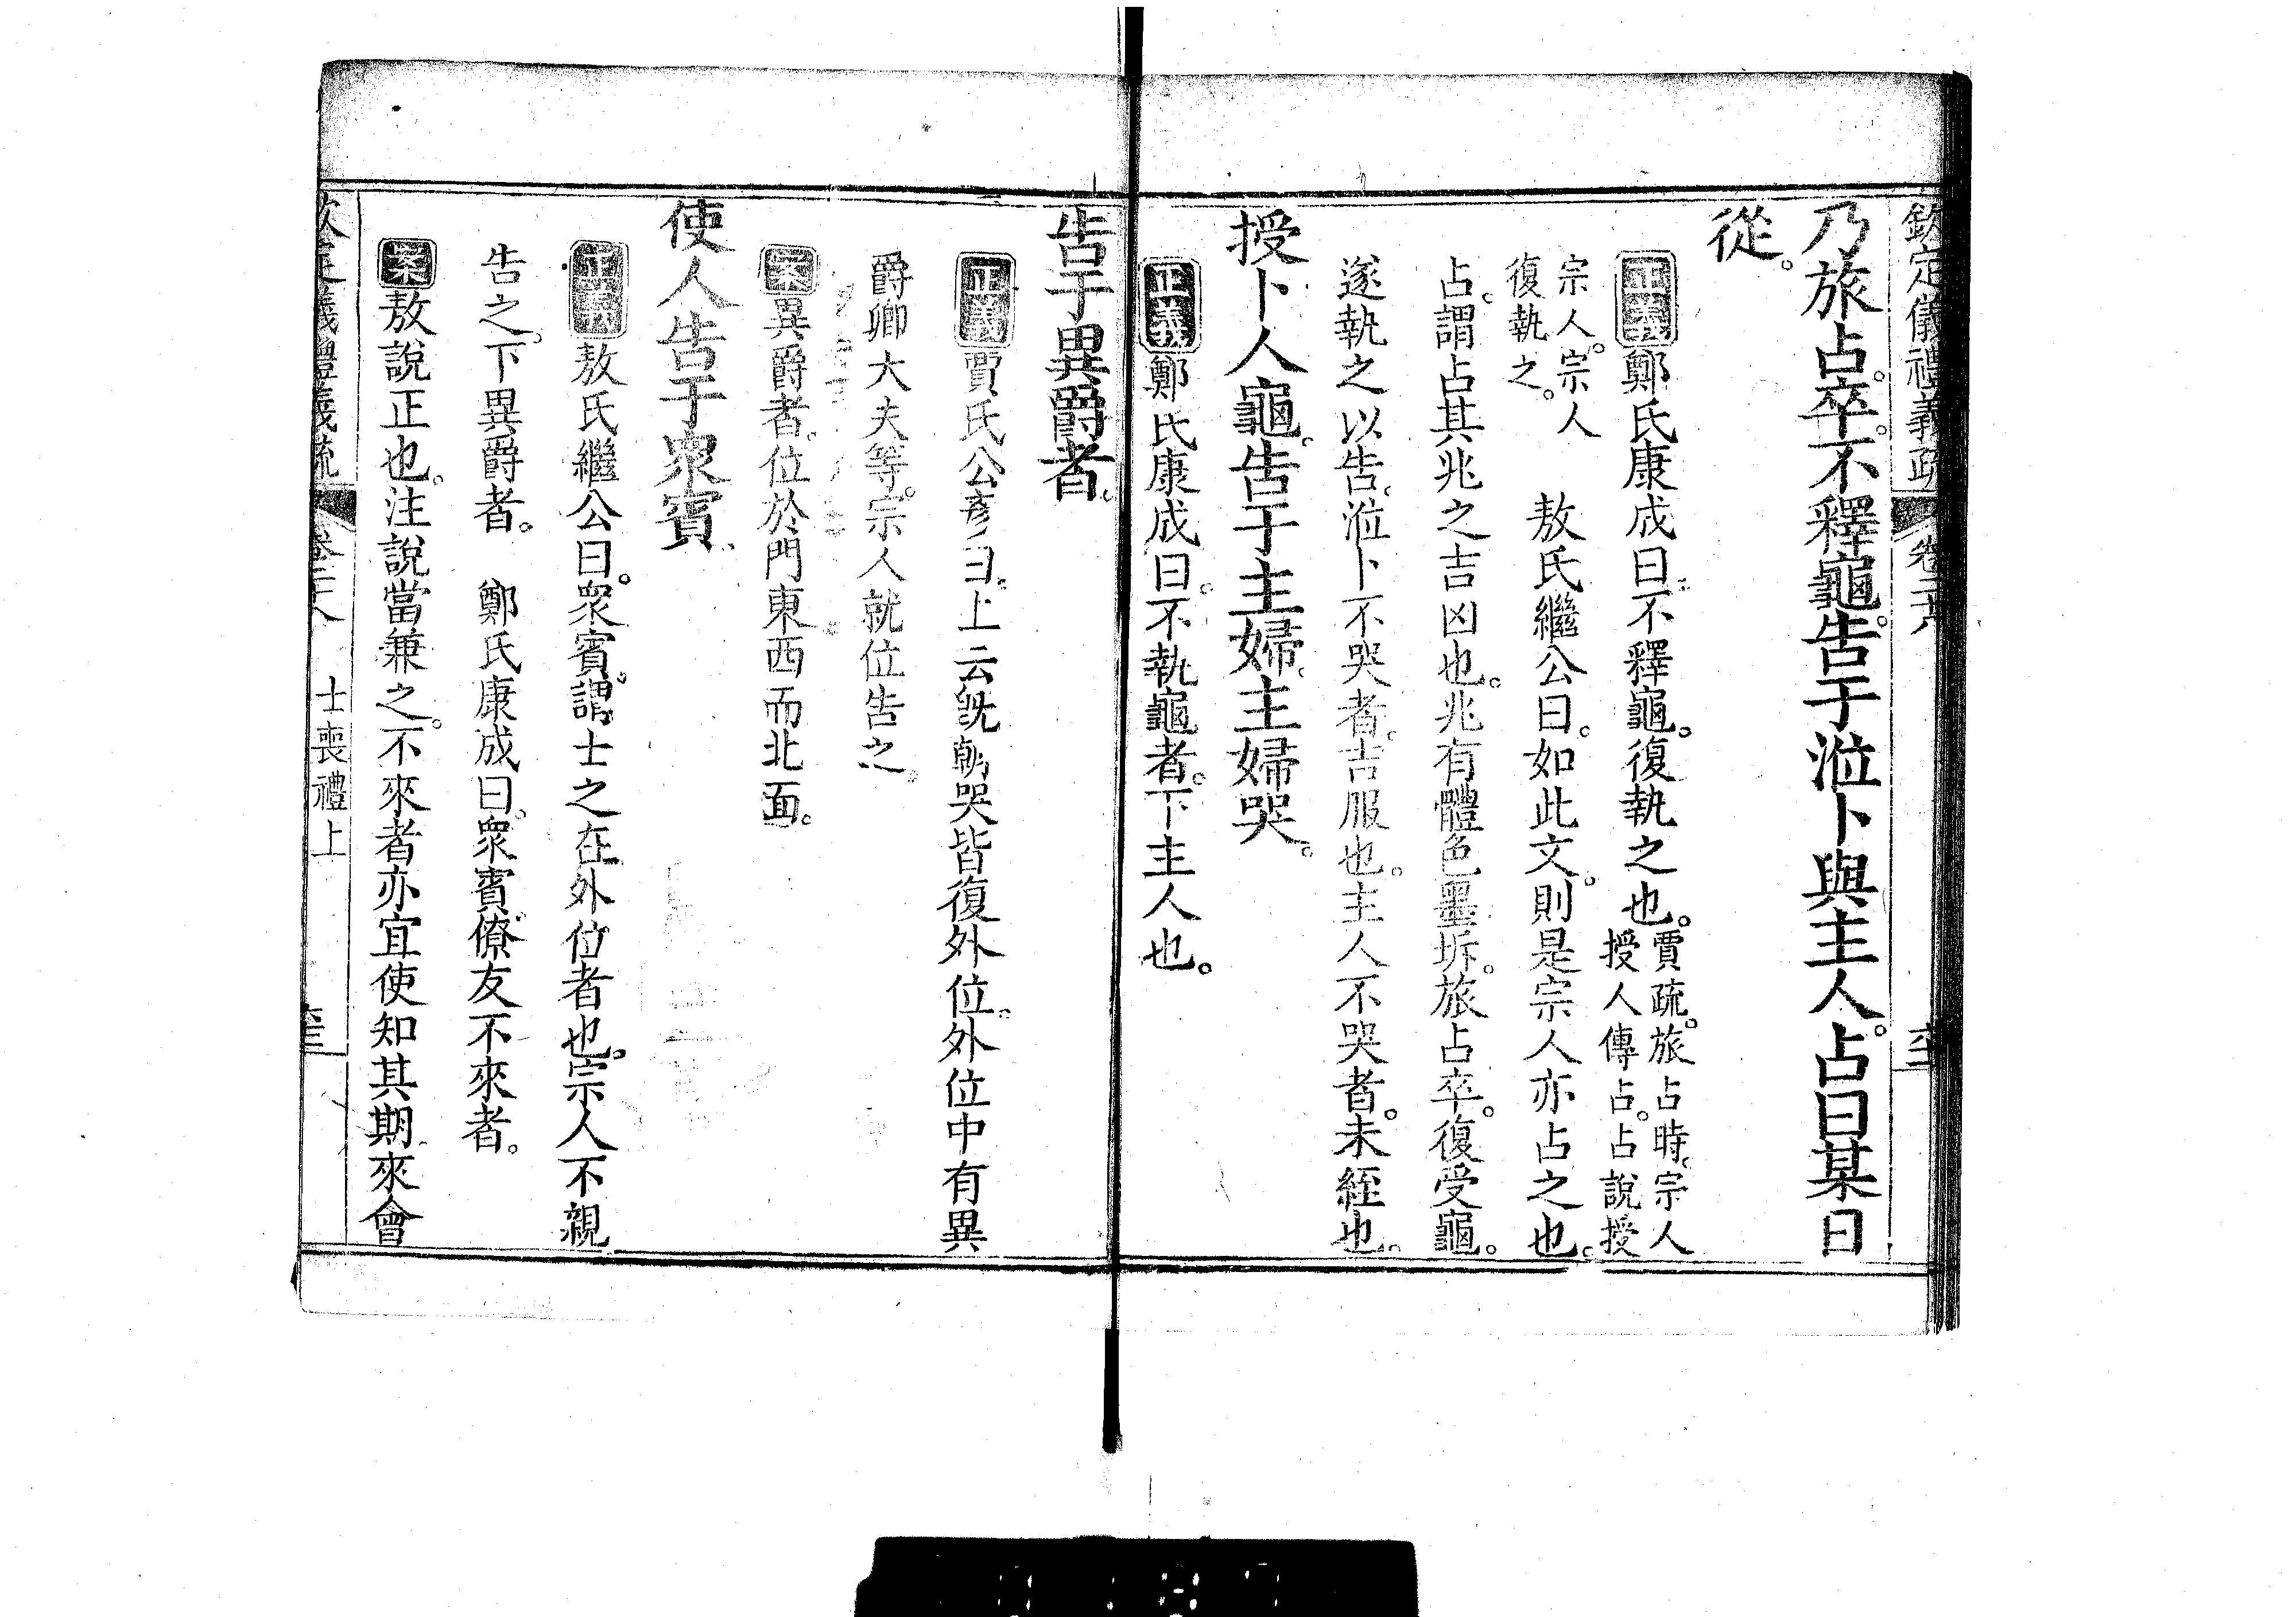 欽定儀禮義疏 卷二十八
乃旅占。卒。不釋龜。告于涖卜與主人。占曰某日
從。
正義 鄭氏康成曰。不釋龜。復執之也。賈疏。旅占時。宗人
授人傳占。占說授
宗人。宗人
復執之。
敖氏繼公曰。如此文。則是宗人亦占之也。
占。謂占其兆之吉凶也。兆有體色墨坼。旅占卒。復受龜。
遂執之以告。涖卜不哭者。吉服也。主人不哭者。未絰也。
授卜人龜。告于主婦。主婦哭。
正義 鄭氏康成曰。不執龜者。下主人也。
告于異爵者。
正義 賈氏公彥曰。上云既朝哭皆復外位。外位中有異
爵卿大夫等。宗人就位告之。
案 異爵者。位於門東西而北面。
使人告于衆賓。
正義 敖氏繼公曰。衆賓。謂士之在外位者也。宗人不親
告之。下異爵者。 鄭氏康成曰。衆賓。僚友不來者。
案 敖說正也。注說當兼之。不來者亦宜使知其期。來會
欽定儀禮義疏 卷二十八 士喪禮上